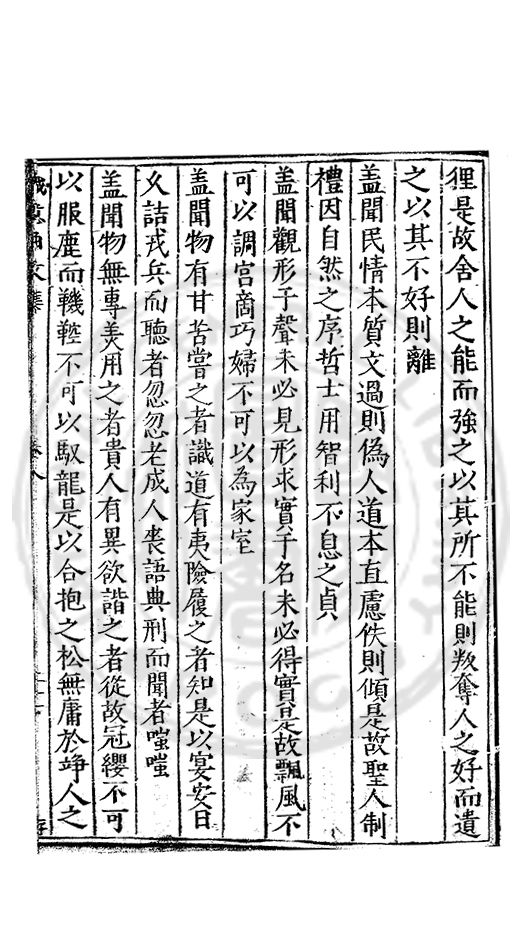 狸是故舍人之能而強之以其所不能則叛奪人之好而遺
之以其不好則離
盖聞民情本質文過則偽人道本直慮佚則傾是故聖人制
禮因自然之序哲士用智利不息之貞
盖聞觀形于聲未必見形求實于名未必得實是故飄風不
可以調宮商巧婦不可以為家室
盖聞物有甘苦嘗之者識道有夷險履之者知是以宴安日
久詰戎兵而聽者忽忽老成人喪語典刑而聞者嗤嗤
盖聞物無專美用之者貴人有異欲諧之者從故冠纓不可
以服鹿而鞿鞚不可以馭龍是以合抱之松無庸於竫人之
誠意伯文集
卷八